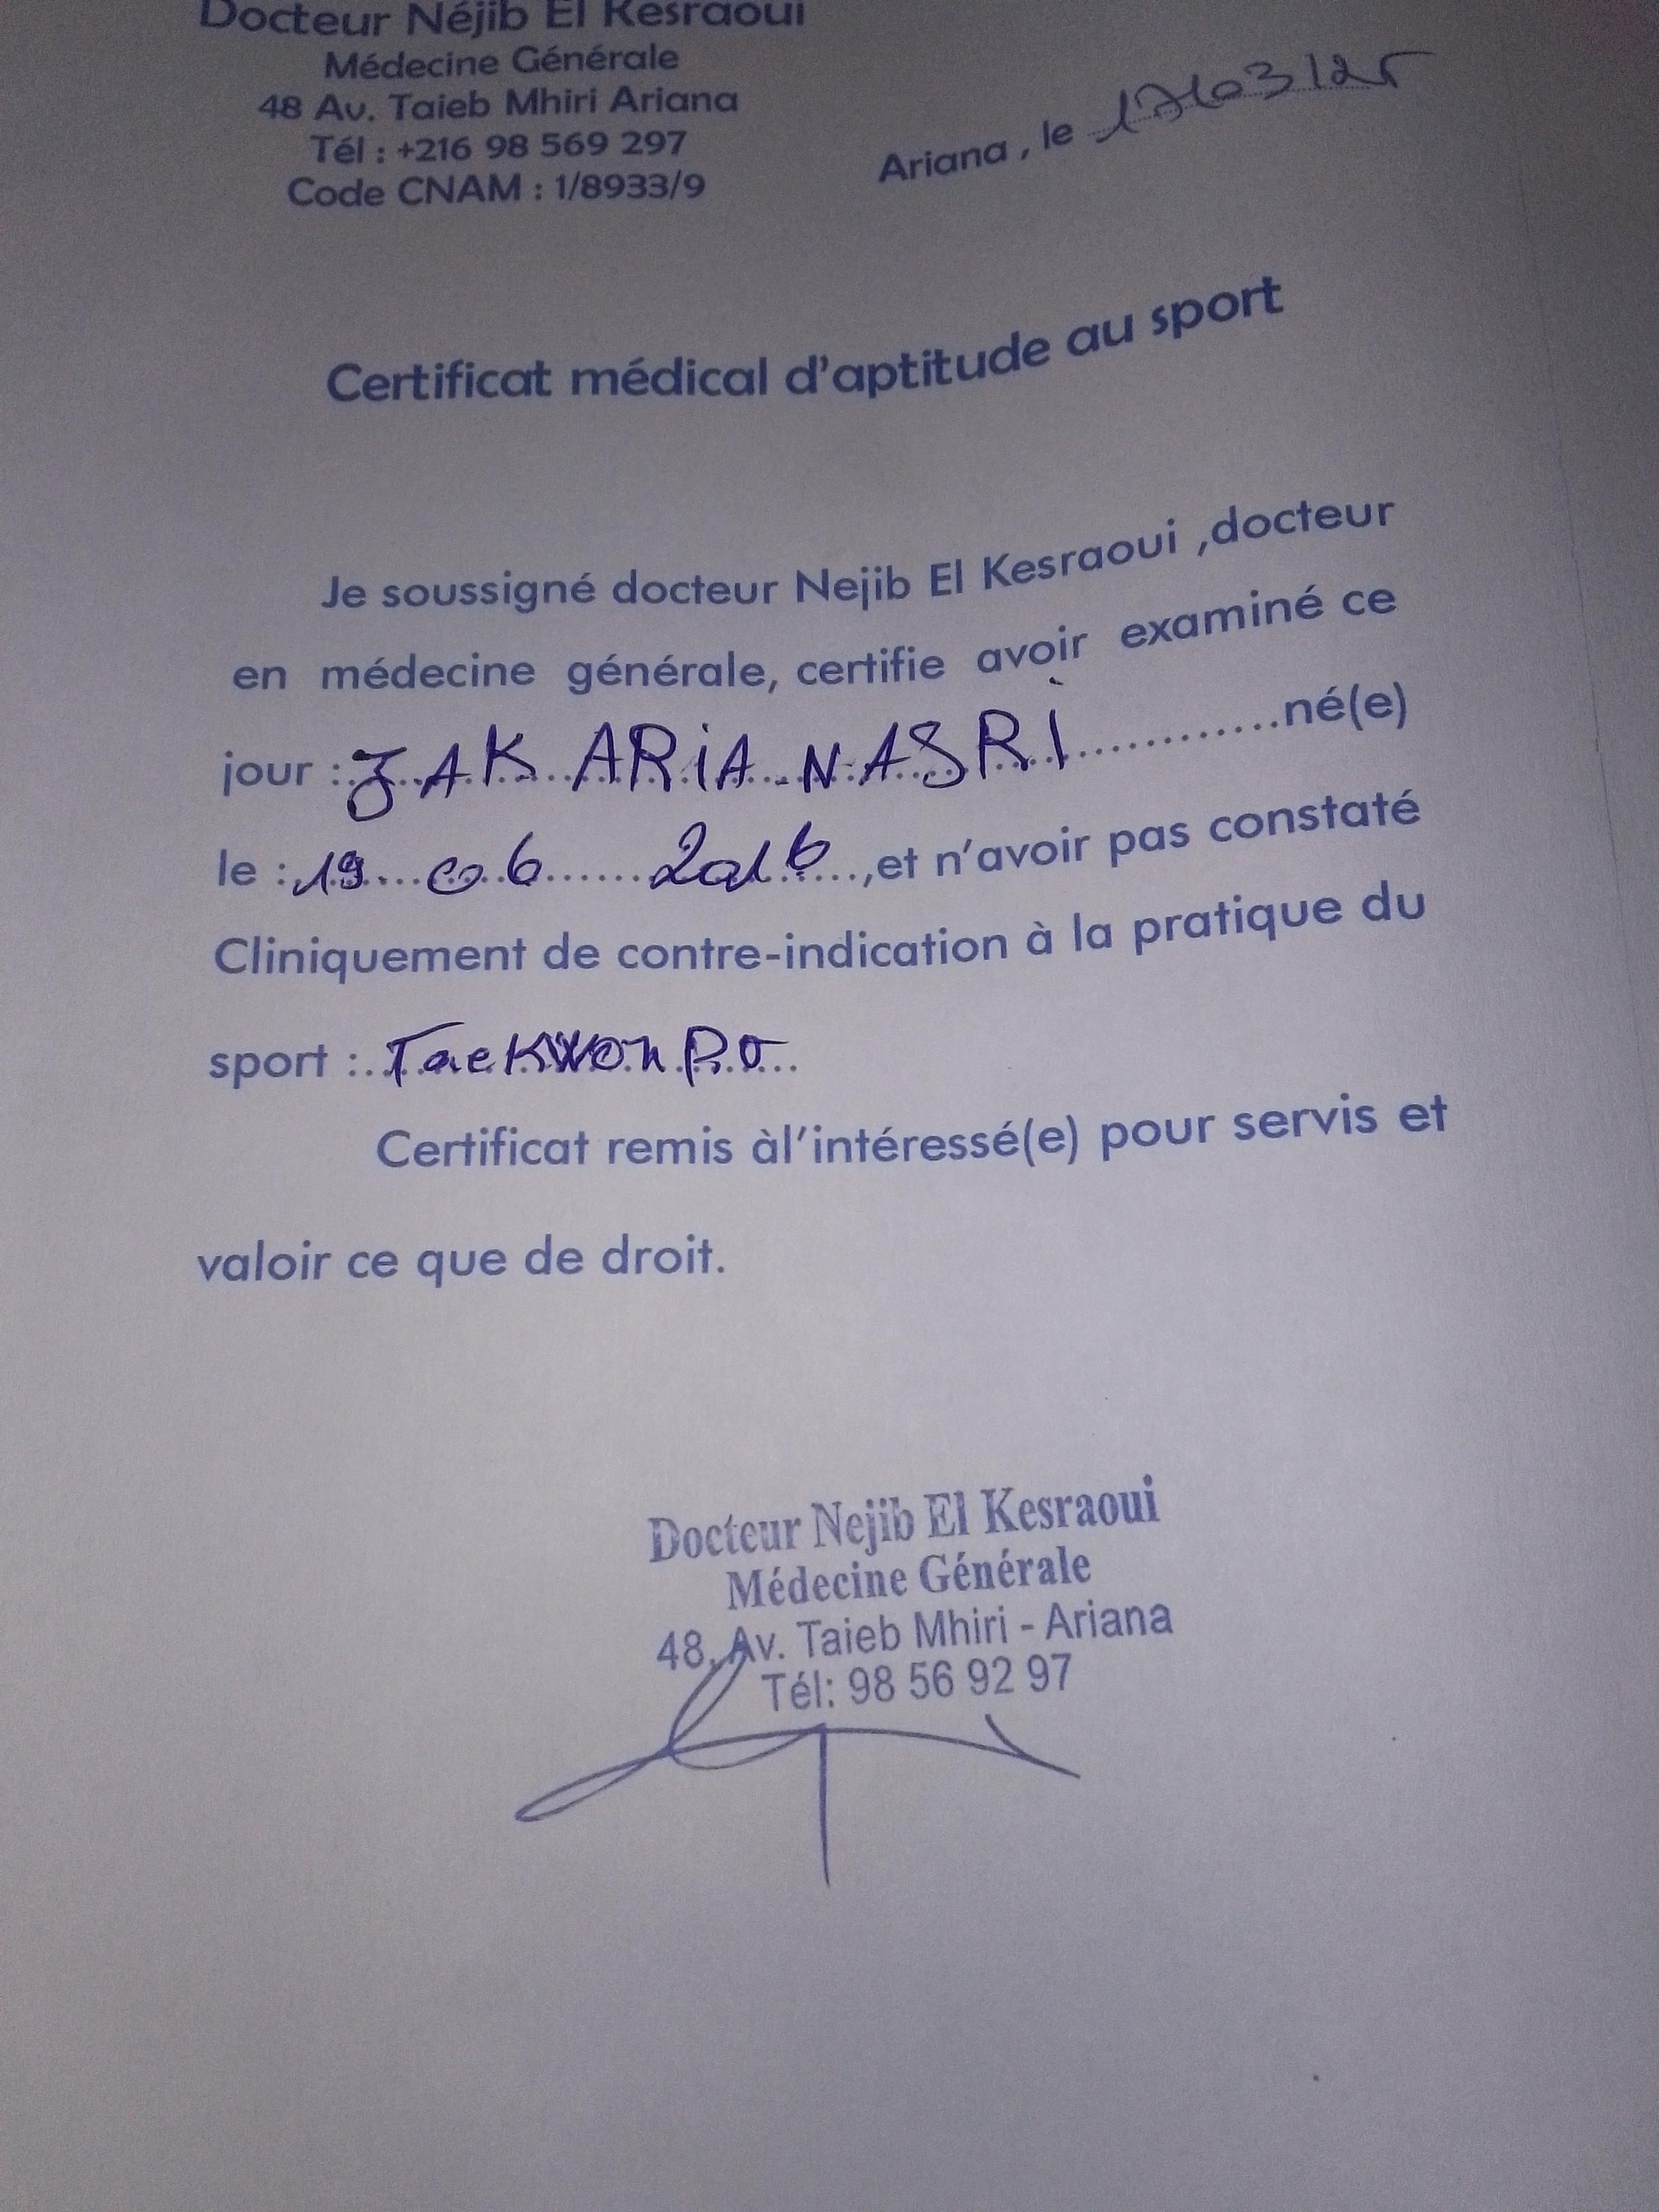 Docteur Néjib El Kesraoui
Médecine Générale
48 Av. Taieb Mhiri Ariana
Tél : +216 98 569 297
Code CNAM : 1/8933/9
Ariana , le 17/03/25
Certificat médical d'aptitude au sport
Je soussigné docteur Nejib El Kesraoui ,docteur
en médecine générale, certifie avoir examiné ce
jour :ZAKARIA NASRI............né(e)
le :19 06 2016,et n'avoir pas constaté
Cliniquement de contre-indication à la pratique du
sport :TaeKWonDo
Certificat remis àl'intéressé(e) pour servis et
valoir ce que de droit.
Docteur Nejib El Kesraoui
Médecine Générale
48, Av. Taieb Mhiri - Ariana
Tél: 98 56 92 97